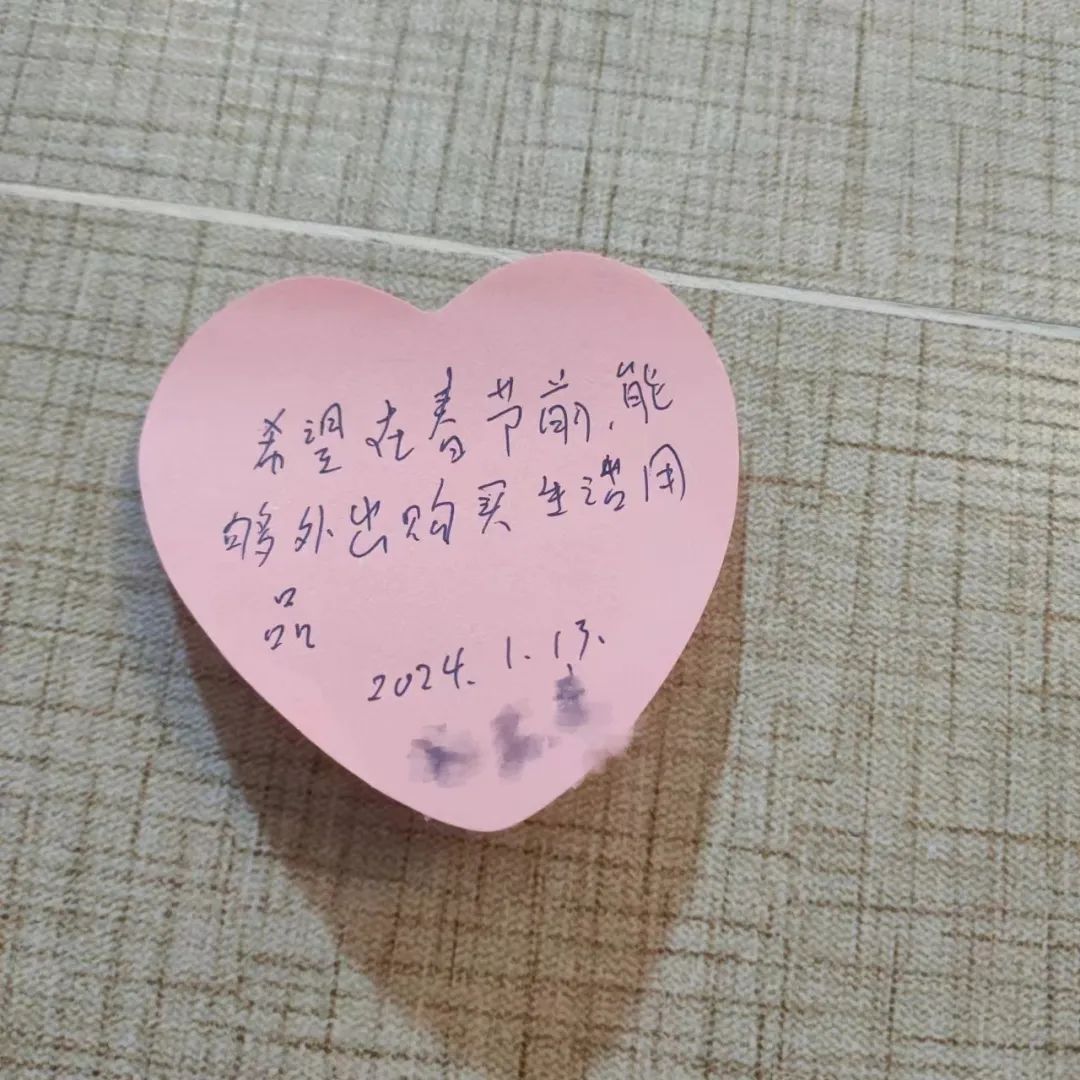 希望在春节前,能
够外出购买生活用
品
2024.1.13.